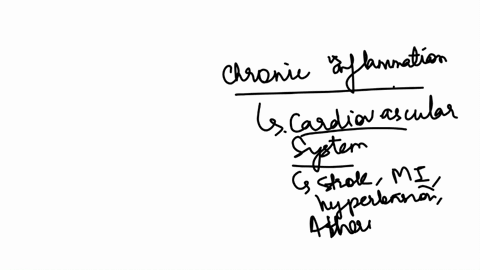 Chronic inflammation
↳. Cardiovascular
System
↳ Stroke, MI,
hypertension,
Ather